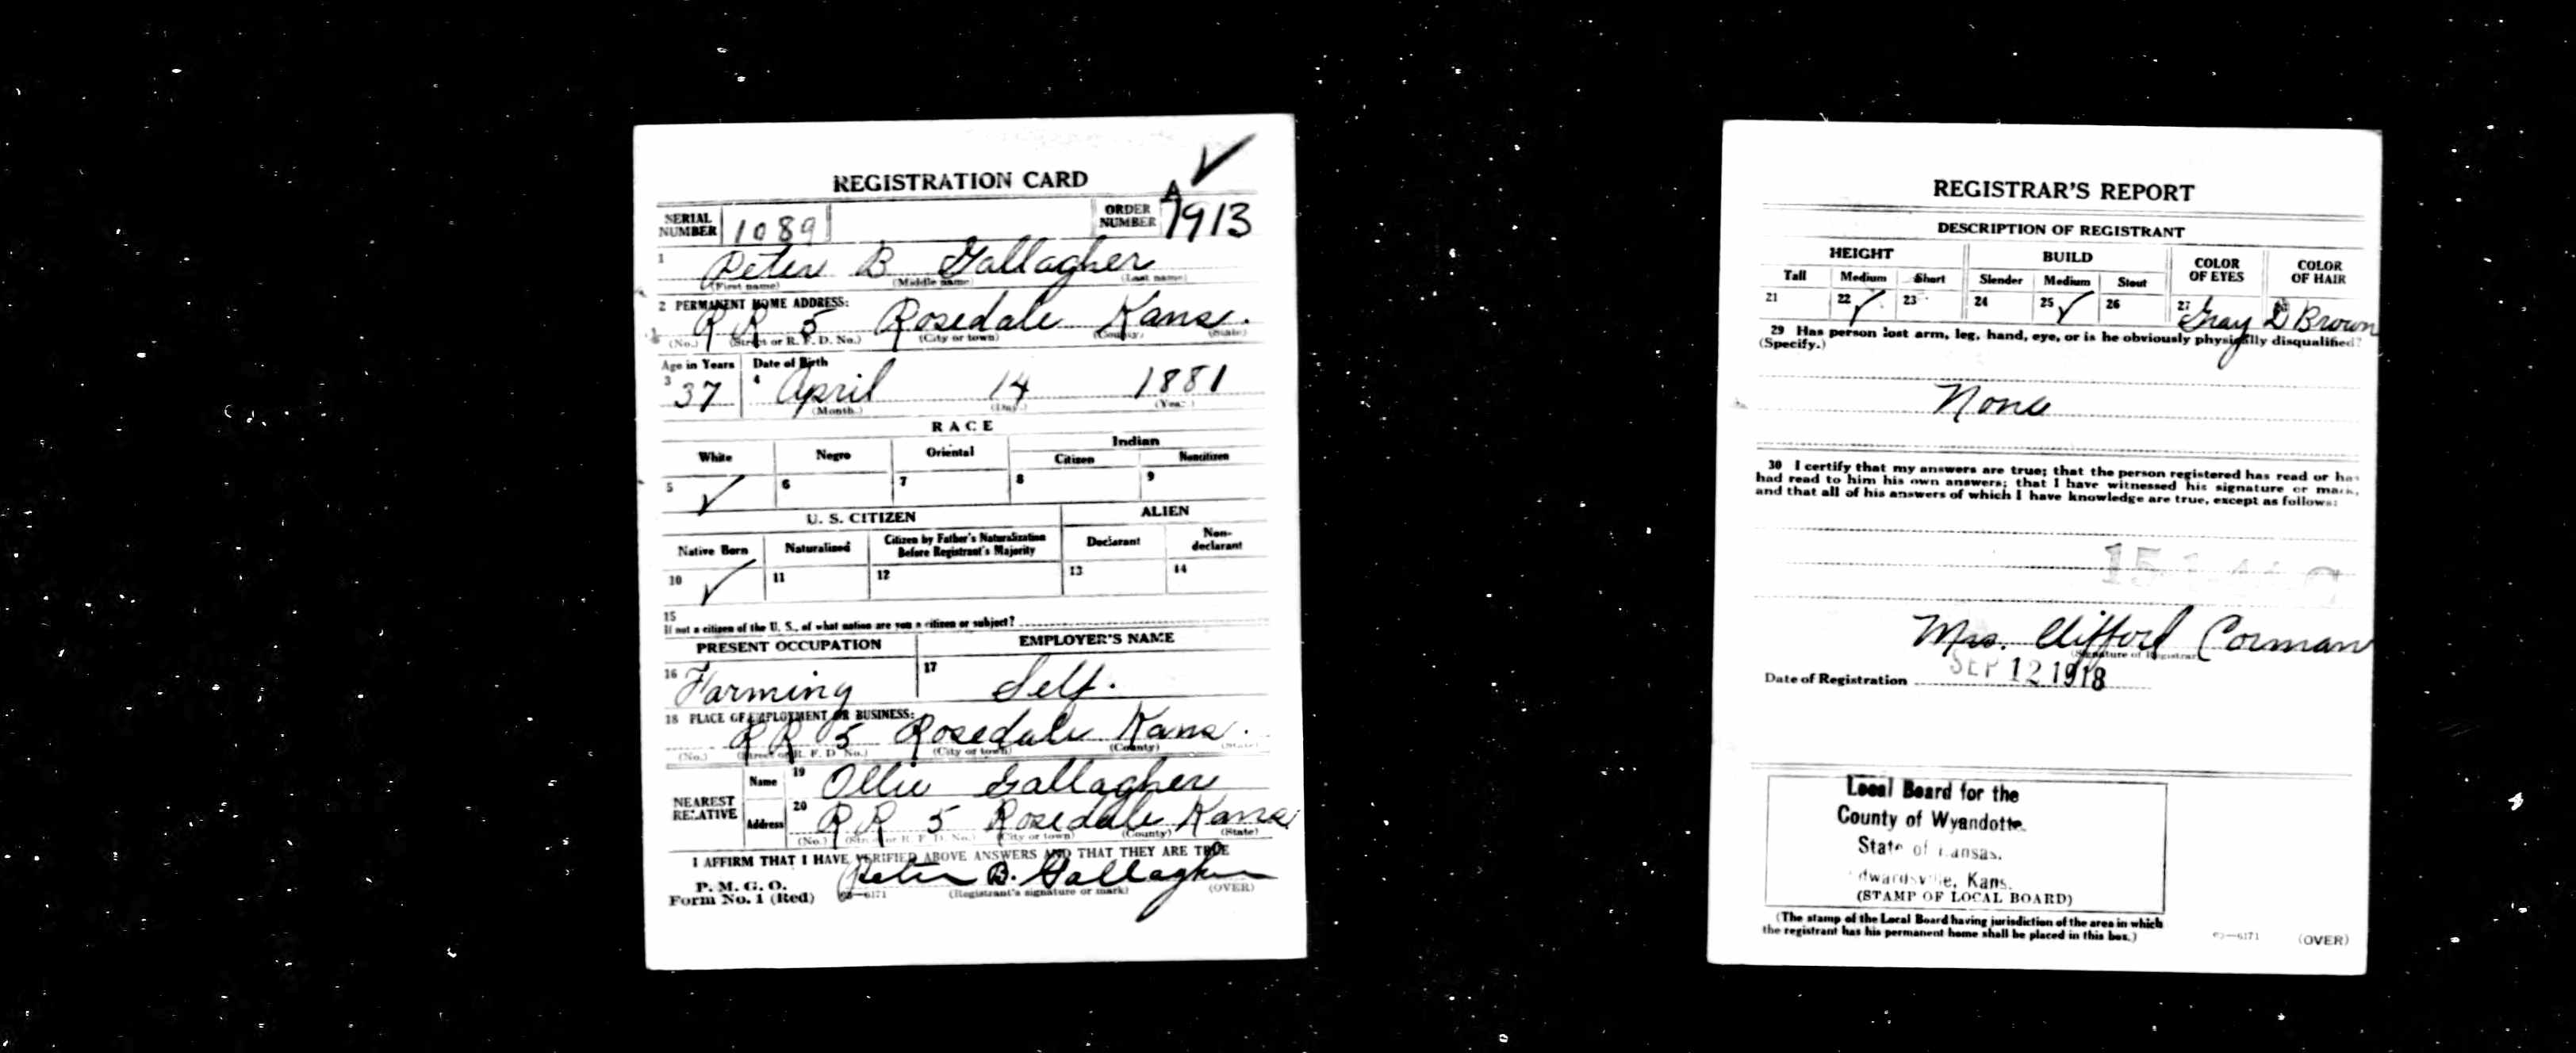 REGISTRATION CARD
SERIAL NUMBER 1089 ORDER NUMBER A 1913
1 Peter B Gallagher
(First name) (Middle name) (Last name)
2 PERMANENT HOME ADDRESS:
R R 5 Rosedale Kans.
(No.) (Street or R. F. D. No.) (City or town) (County) (State)
Age in Years Date of Birth
3 37 4 April 14 1881
(Month.) (Day.) (Year.)
RACE
White Negro Oriental Indian
Citizen Noncitizen
5 ✓ 6 7 8 9
U. S. CITIZEN ALIEN
Native Born Naturalized Citizen by Father's Naturalization Before Registrant's Majority Declarant Non-declarant
10 ✓ 11 12 13 14
15
If not a citizen of the U. S., of what nation are you a citizen or subject?
PRESENT OCCUPATION EMPLOYER'S NAME
16 Farming 17 Self.
18 PLACE OF EMPLOYMENT OR BUSINESS:
R R 5 Rosedale Kans.
(No.) (Street or R. F. D. No.) (City or town) (County) (State)
NEAREST RELATIVE Name 19 Ollie Gallagher
Address 20 R R 5 Rosedale Kans
(No.) (Street or R. F. D. No.) (City or town) (County) (State)
I AFFIRM THAT I HAVE VERIFIED ABOVE ANSWERS AND THAT THEY ARE TRUE
P. M. G. O.
Form No. 1 (Red) 03—6171 Peter B. Gallagher
(Registrant's signature or mark) (OVER)
REGISTRAR'S REPORT
DESCRIPTION OF REGISTRANT
HEIGHT BUILD COLOR OF EYES COLOR OF HAIR
Tall Medium Short Slender Medium Stout
21 22 ✓ 23 24 25 ✓ 26 27 Gray D Brown
29 Has person lost arm, leg, hand, eye, or is he obviously physically disqualified?
(Specify.)
None
30 I certify that my answers are true; that the person registered has read or has
had read to him his own answers; that I have witnessed his signature or mark,
and that all of his answers of which I have knowledge are true, except as follows:
Mrs. Clifford Corman
(Signature of Registrar)
Date of Registration SEP 12 1918
Local Board for the
County of Wyandotte
State of Kansas.
Edwardsville, Kans.
(STAMP OF LOCAL BOARD)
(The stamp of the Local Board having jurisdiction of the area in which
the registrant has his permanent home shall be placed in this box.)
03—6171 (OVER)